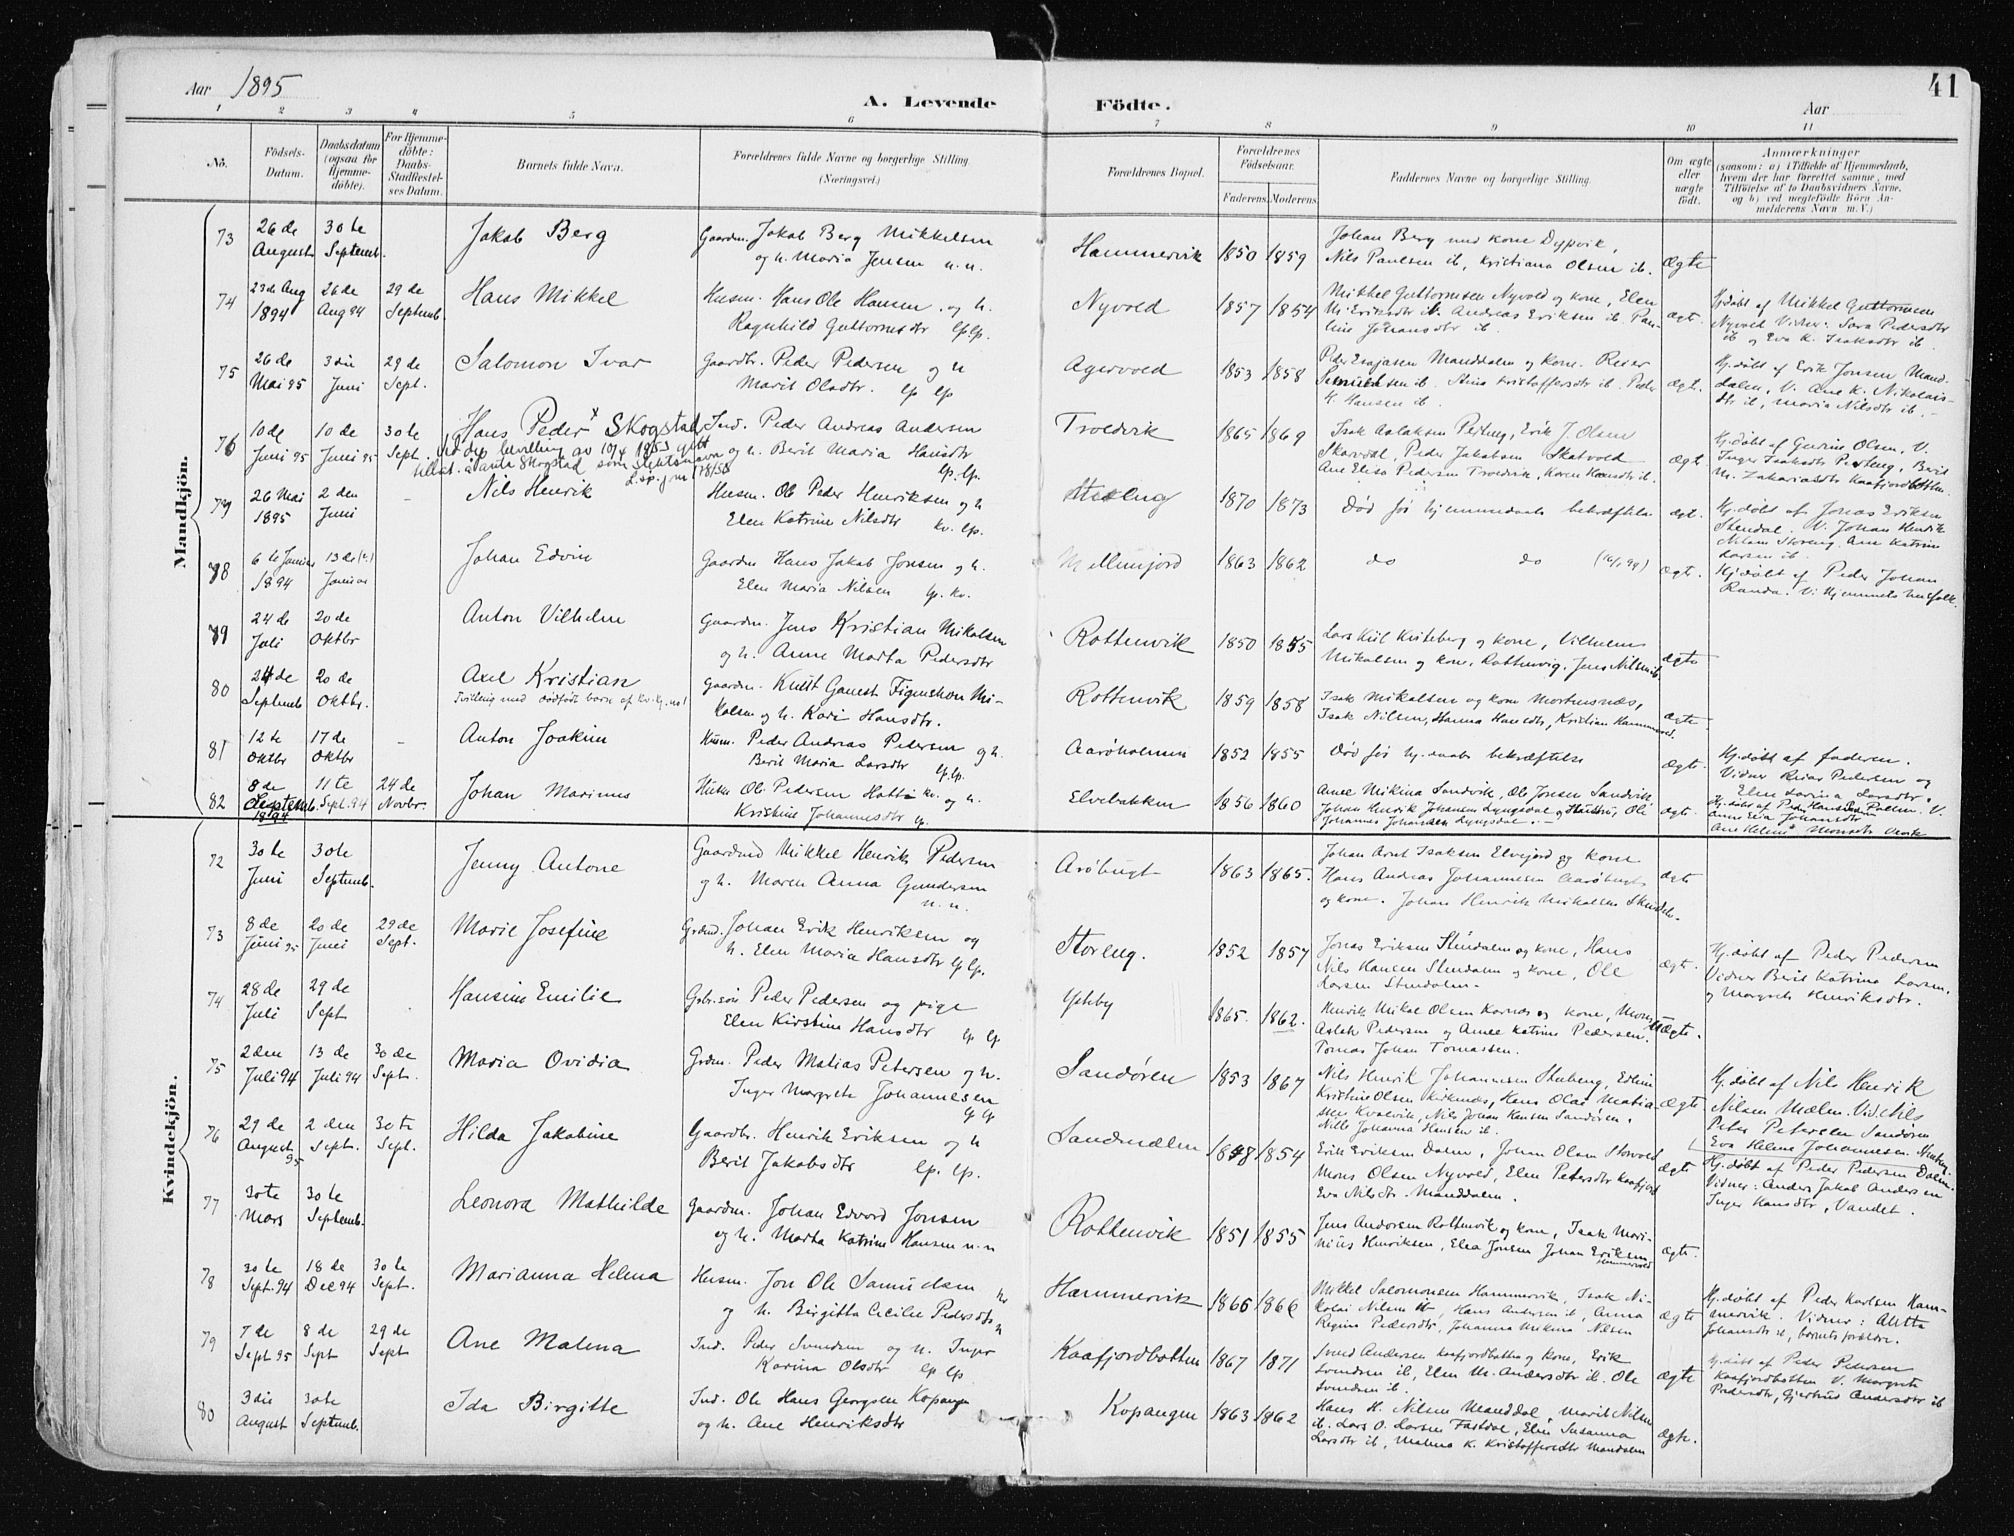 Aar 1895
A. Levende Födte.
Aar
41
1 2 3 4 5 6 7 8 9 10 11
No. Födsels-Datum. Daabsdatum (ogsaa for Hjemme-döbte). For Hjemme-döbte: Daabs-Stadfæstel-ses Datum. Barnets fulde Navn. Forældrenes fulde Navne og borgerlige Stilling (Næringsvei.) Forældrenes Bopæl. Forældrenes Födselsaar. Faderens. Moderens. Faddernes Navne og borgerlige Stilling. Om ægte eller uægte födt. Anmærkninger (saasom: a) i Tilfælde af Hjemmedaab, hvem der har forrettet samme, med Tilföielse af to Daabsvidners Navne, og b) ved uægtefödte Börn An-melderens Navn m. V.)
Mandkjön.
73 26de August 30te Septemb. Jakob Berg Gaardm. Jakob Berg Mikkelsen og h. Maria Jensen n.n. Hammervik 1850 1859 Johan Berg med kone Dypvik, Nils Paulsen ib, Kristiana Olsen ib. ægte
74 23de Aug 1894 26de Aug 94 29de Septemb. Hans Mikkel Husm. Hans Ole Hansen og h. Ragnhild Guttormsdtr lp lp. Nyvold 1857 1854 Mikkel Guttormsen Nyvold og kone, Elen M. Eriksdtr ib. Andreas Eriksen ib. Pauline Johansdtr ib. ægt. Hj.döbt af Mikkel Guttormsen Nyvold Vidner: Sara Pedersdtr ib og Eva K. Isaksdtr ib.
75 26de Mai 95 3die Juni 29de Sept. Salomon Ivar Gaardbr. Peder Pedersen og h Marit Olsdtr. lp lp Agervold 1853 1858 Peder Manddalen og kone. Reier Samuelsen ib. Stina Kristoffersdtr ib. Peder H. Hansen ib. ægt. Hj.döbt af Erik Jonsen Manddalen, V. Ane K. Nikolaisdtr ib, Maria Nilsdtr ib.
76 10de Juni 95 10de Juni 95 30te Sept. Hans Peder x Skogstad Ind. Peder Andreas Andersen og h. Berit Maria Hansdtr lp. lp. Troldvik 1865 1869 Isak Aslaksen Erik J. Olsen Skardal, Peder Jakobsen Skatvold Ane Elisa Pedersen Troldvik, Karen Hansdtr ib. ægt. Hj.döbt af Olsen, V. Inger Isaksdtr Berit M. Zakariasdtr Kaafjordbotten
x Ved dep. bevilling av 10/4 1953 gitt tillat. å anta Skogstad som slektsnavn
77 26 Mai 1895 2den Juni - Nils Henrik Husm. Ole Peder Henriksen og h Elen Katrine Nilsdtr kv. lp. Storeng 1870 1873 Död för hjemmedaabs bekræftelse ægt. Hj.döbt af Jonas Eriksen Stendal. V. Johan Henrik Nilsen Storeng. Ane Katrine Larsen ib.
78 6te Januar 1894 13de Januar Johan Edvin Gaardm Hans Jakob Jonsen og h. Elen Maria Nilsen lp. kv. 1863 1862 do do ægte. Hj.döbt af Peder Johan Randa. V. Hjemmets husfolk.
79 24de Juli 20de Oktbr Anton Vilhelm Gaardm. Jens Kristian Mikalsen og h. Anne Marta Pedersdtr Rottenvik 1850 1855 Lars Kiil Kviteberg og kone, Vilhelm Mikalsen og kone, Rottenvig, Jens Nilsen ib. ægte
80 24de Septemb 20de Oktbr. Axel Kristian Tvilling med dödfödt barn af kv.kj. Gaardm. Knut Ganest Figenshou Mikalsen og h. Kari Hansdtr. Rottenvik 1859 1858 Isak Mikalsen og kone Mortensnes, Isak Nilsen, Hanna Hansdtr, Kristian Hammervold. ægte
81 12te Oktbr 17de Oktbr - Anton Joakim Husm. Peder Andreas Pedersen og h. Berit Maria Larsdtr lp. lp. Aaröholmen 1852 1855 Död för hj.daabs bekræftelse ægte. Hj.döbt af faderen. Vidner Reier Pedersen og Elen Larsdtr.
82 8de Septemb. 1894 11te Sept. 94 24de Novbr. Johan Marinus Husm Ole Pedersen Hatten kv. og h. Kristine Johannesdtr lp. Elvebakken 1856 1860 Anne Mikina Sandvik, Ole Jonsen Sandvik Johan Henrik Johansen Lyngsdal og Ole Johannes Johansen Lyngsdal. ægte. Hj.döbt af Peder Hansen V. Anne Eva Johansdtr
Kvindekjön.
72 30te Juni 30te Septemb. Jenny Antone Gaardmd Mikkel Henrik Pedersen og h. Maren Anna Gundersen n.n. Aröbugt 1863 1865. Johan Arnt Isaksen Elvejord og kone Hans Andreas Johannesen Aaröbugt og kone. Johan Henrik Mikalsen ægte
73 8de Juni 95 20de Juni 29de Sept. Marie Josefine Grdmd. Johan Erik Henriksen og h. Elen Maria Hansdtr lp lp. Storeng. 1852 1857 Jonas Eriksen Stendalen og kone, Hans Nils Hansen Stendalen og kone, Ole Larsen Stendalen. ægte. Hj.döbt af Peder Pedersen Vidner Berit Katrina Larsen, og Margrete Henriksdtr.
74 28de Juli 29de Sept Hansine Emilie Gbr.sön Peder Pedersen og pige Elen Kirstine Hansdtr lp lp 1865. 1862. Henrik Mikal Olsen Kornæs og kone, Aslak Pedersen og Anne Katrine Pedersen. Tomas Johan Tomassen. uægte.
75 2den Juli 94 13de Juli 94 30de Sept. Maria Ovidia Grdm. Peder Matias Petersen og h. Inger Margrete Johannesen lp lp Sandören 1853 1867 Nils Henrik Johannesen Steberg, Kristine Olsen Kirknæs, Hans Olai Kvalvik, Nils Johan Hansen Sandören, Nille Johanna Hansen ib. ægte Hj.döbt af Nils Henrik Nilsen Mælen. Vid. Nils Peter Petersen Sandören Eva Helene Johannesen
76 29de August 95 2den Sept. 30te Sept. Hilda Jakobine Gaardbr. Henrik Eriksen og h Berit Jakobsdtr lp. lp. Sandmælen 1848 1854 Erik Eriksen Dalen, Johan Olsen Storvold Mons Olsen Nyvold, Elen Petersdtr Kaafjord Eva Nilsdtr. Manddalen. ægte Hj.döbt af Peder Pedersen Dalen. Vidner: Anders Jakob Andersen Inger Hansdtr, Vandet.
77 30te Mars 30te Septemb. Leonora Mathilde Gaardm. Johan Edvard Jonsen og h. Marta Katrine Hansen n.n Rottenvik 1851 1855 Jens Andersen Rottenvik og kone, Isak Marinius Henriksen, Elea Jonsen Johan Eriksen Hammervold ægte.
78 30te Sept. 94 18de Dec 94 30te Sept. Marianna Helena Husm. Jon Ole Samuelsen og h. Birgitta Cecilie Pedersdtr Hammervik 1866 1866 Mikkel Salomonsen Hammervik, Isak Nikolai Nilsen, Hans Andersen ib, Anna Regina Pedersdtr, Johanna Mikina Nilsen ægte Hj.döbt af Peder Karlsen Hammervik. Vidner: Aletta Johansdtr ib, barnets forældre.
79 7de Sept 95 8de Sept 29de Sept Ane Malena Ind. Peder Svendsen og h. Inger Karina Olsdtr lp lp Kaafjordbotten 1867 1871 Svend Andersen Kaafjordbotten og kone, Erik Svendsen ib, Elen M. Andersdtr ib. Ole Svendsen ib. ægte Hj.döbt af Peder Pedersen Kaafjordbotten V. Margrete Pedersdtr, Gjertrud Andersdtr ib
80 3die August 30te Septemb. Ida Birgitte Ind. Ole Hans Georgsen Kopangen og h. Ane Henriksdtr Kopangen 1863 1862 Hans H. Nilsen Manddal, Marit Nilsen ib. Lars O. Larsen Fastdal, Elen Susanna Larsdtr ib, Malena K. Kristoffersdtr Manddalen ægte.